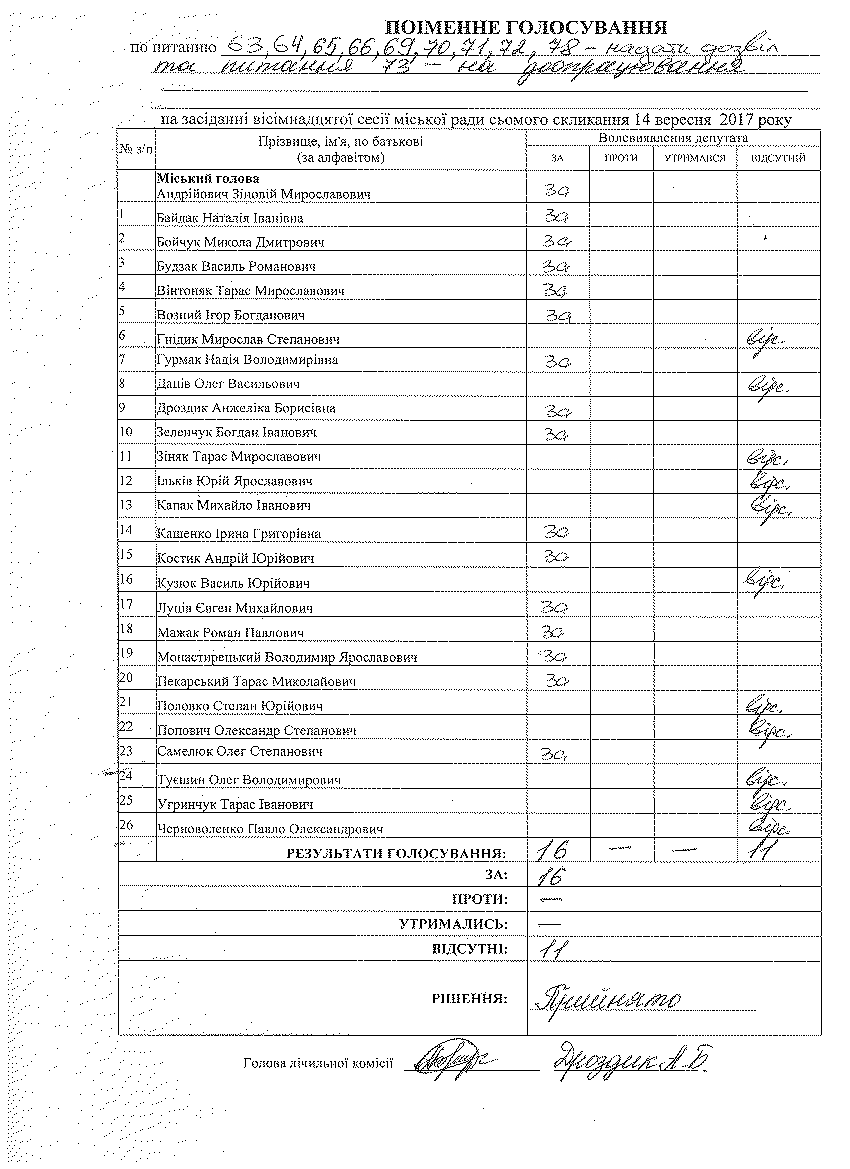 ПОІМЕННЕ ГОЛОСУВАННЯ
по питанню 63, 64, 65, 66, 69, 70, 71, 72, 78 – надати дозвіл
та питання 73 – на доопрацювання
на засіданні вісімнадцятої сесії міської ради сьомого скликання 14 вересня 2017 року
№ з/п Прізвище, ім'я, по батькові (за алфавітом) Волевиявлення депутата
ЗА ПРОТИ УТРИМАВСЯ ВІДСУТНІЙ
Міський голова
Андрійович Зіновій Мирославович за
1 Байдак Наталія Іванівна за
2 Бойчук Микола Дмитрович за
3 Будзак Василь Романович за
4 Вінтоняк Тарас Мирославович за
5 Возний Ігор Богданович за
6 Гнідик Мирослав Степанович відс.
7 Гурмак Надія Володимирівна за
8 Даців Олег Васильович відс.
9 Дроздик Анжеліка Борисівна за
10 Зеленчук Богдан Іванович за
11 Зіняк Тарас Мирославович відс.
12 Ільків Юрій Ярославович відс.
13 Капак Михайло Іванович відс.
14 Кашенко Ірина Григорівна за
15 Костик Андрій Юрійович за
16 Кузюк Василь Юрійович відс.
17 Луців Євген Михайлович за
18 Мажак Роман Павлович за
19 Монастирецький Володимир Ярославович за
20 Пекарський Тарас Миколайович за
21 Половко Степан Юрійович відс.
22 Попович Олександр Степанович відс.
23 Самелюк Олег Степанович за
24 Туєшин Олег Володимирович відс.
25 Угринчук Тарас Іванович відс.
26 Черноволенко Павло Олександрович відс.
РЕЗУЛЬТАТИ ГОЛОСУВАННЯ: 16 — — 11
ЗА: 16
ПРОТИ: —
УТРИМАЛИСЬ: —
ВІДСУТНІ: 11
РІШЕННЯ: Прийнято
Голова лічильної комісії Дроздик А. Б.